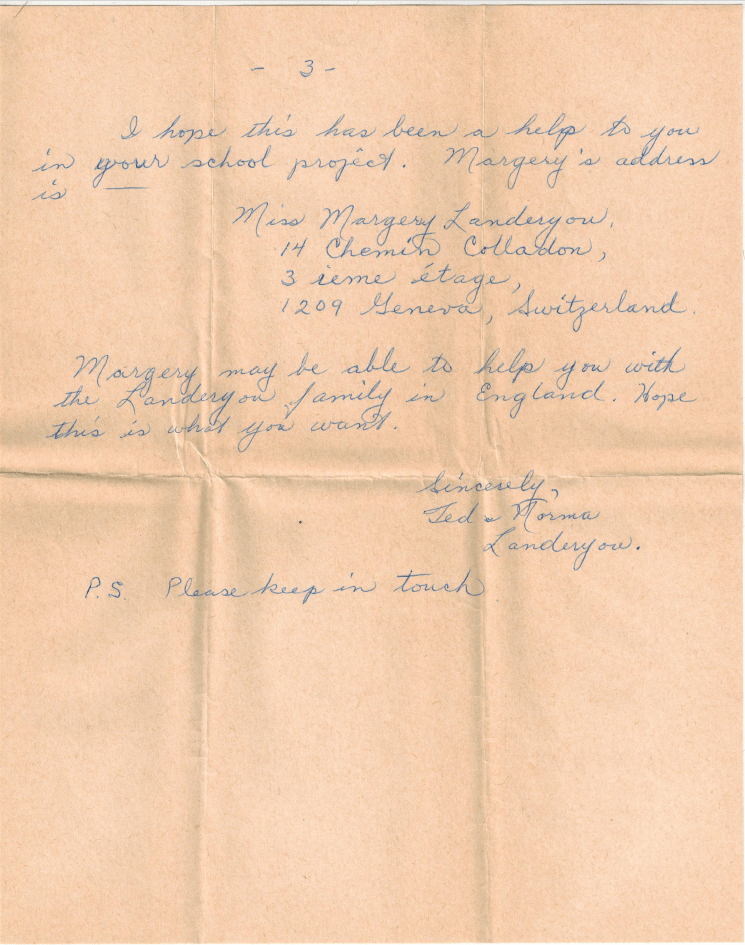 - 3 -
I hope this has been a help to you
in your school project. Margery's address
is
Miss Margery Landeryou,
14 Chemin Colladon,
3 ieme étage,
1209 Geneva, Switzerland.
Margery may be able to help you with
the Landeryou family in England. Hope
this is what you want.
Sincerely,
Ted & Norma
Landeryou.
P.S. Please keep in touch